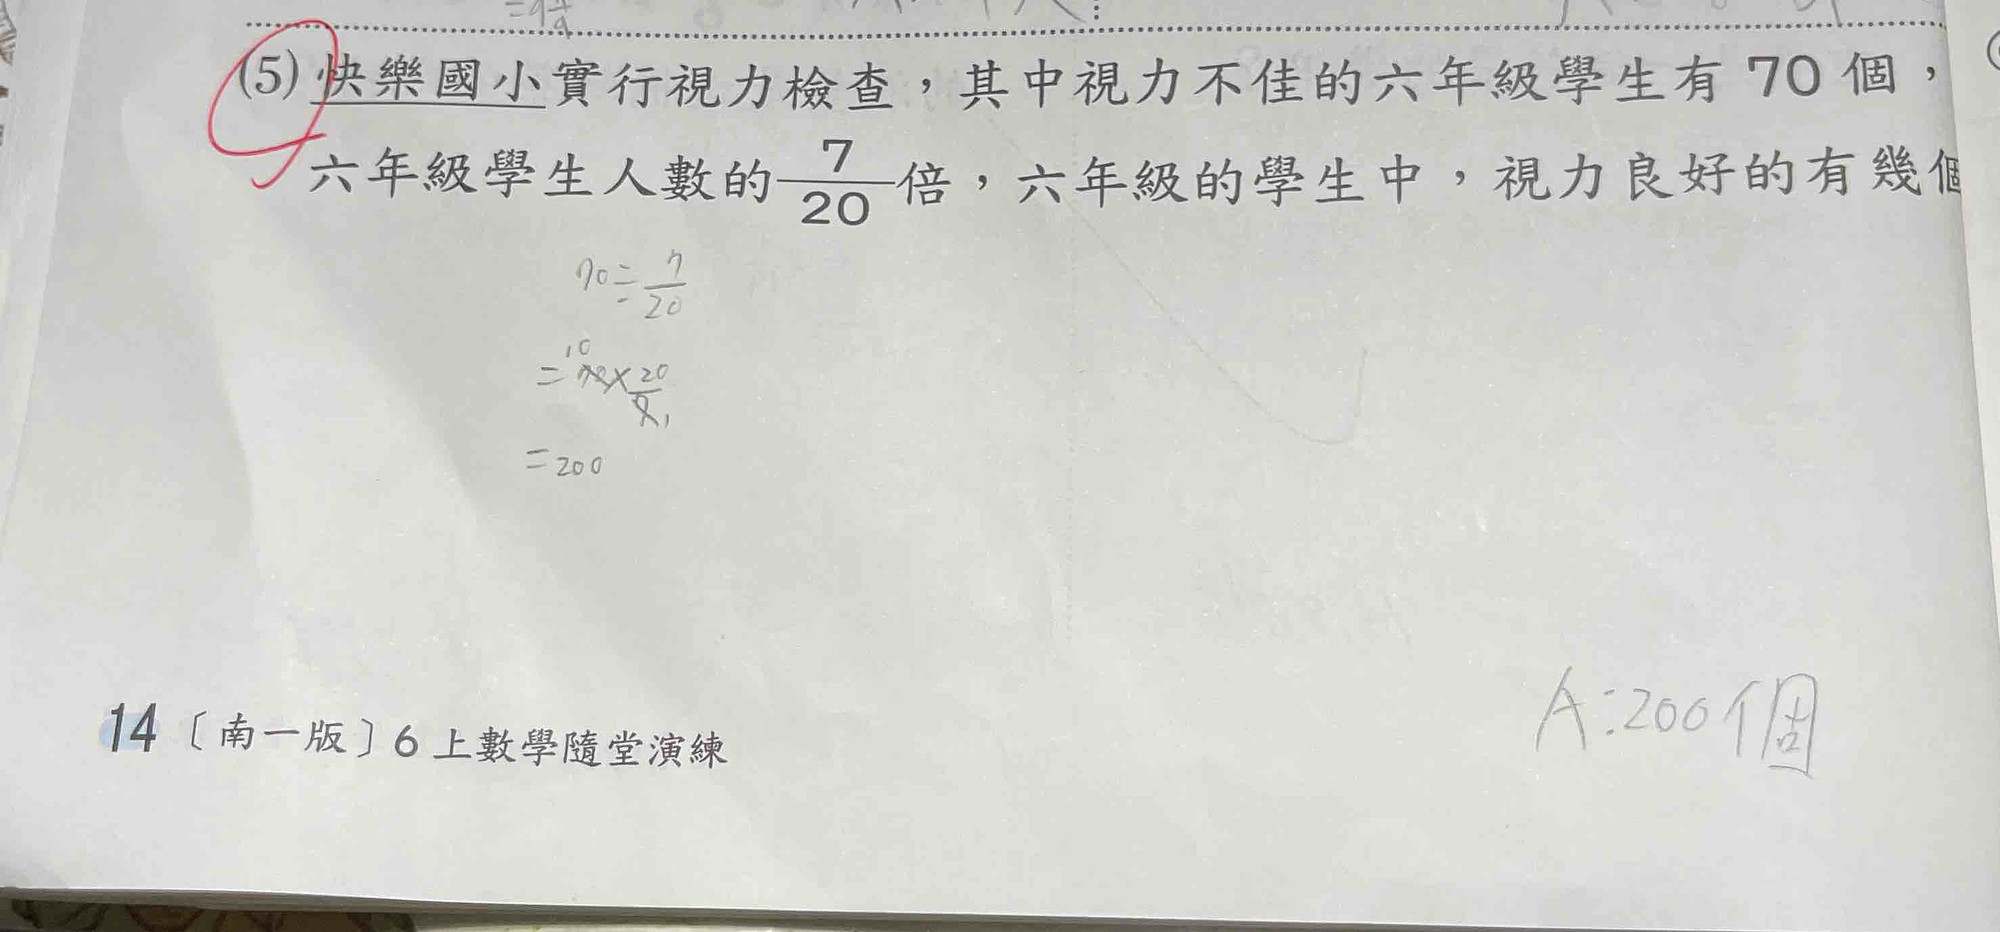 (5) 快樂國小實行視力檢查，其中視力不佳的六年級學生有 70 個，
六年級學生人數的 7/20 倍，六年級的學生中，視力良好的有幾個
70÷7/20
=70×20/7
10
1
=200
A:200個
14〔南一版〕6 上數學隨堂演練